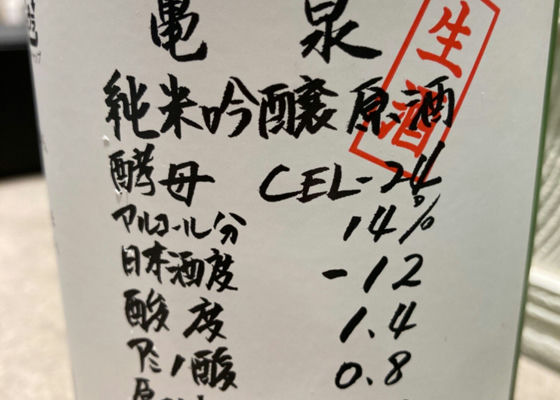 亀泉
生酒
純米吟醸原酒
酵母 CEL-24
アルコール分 14%
日本酒度 -12
酸度 1.4
アミノ酸 0.8